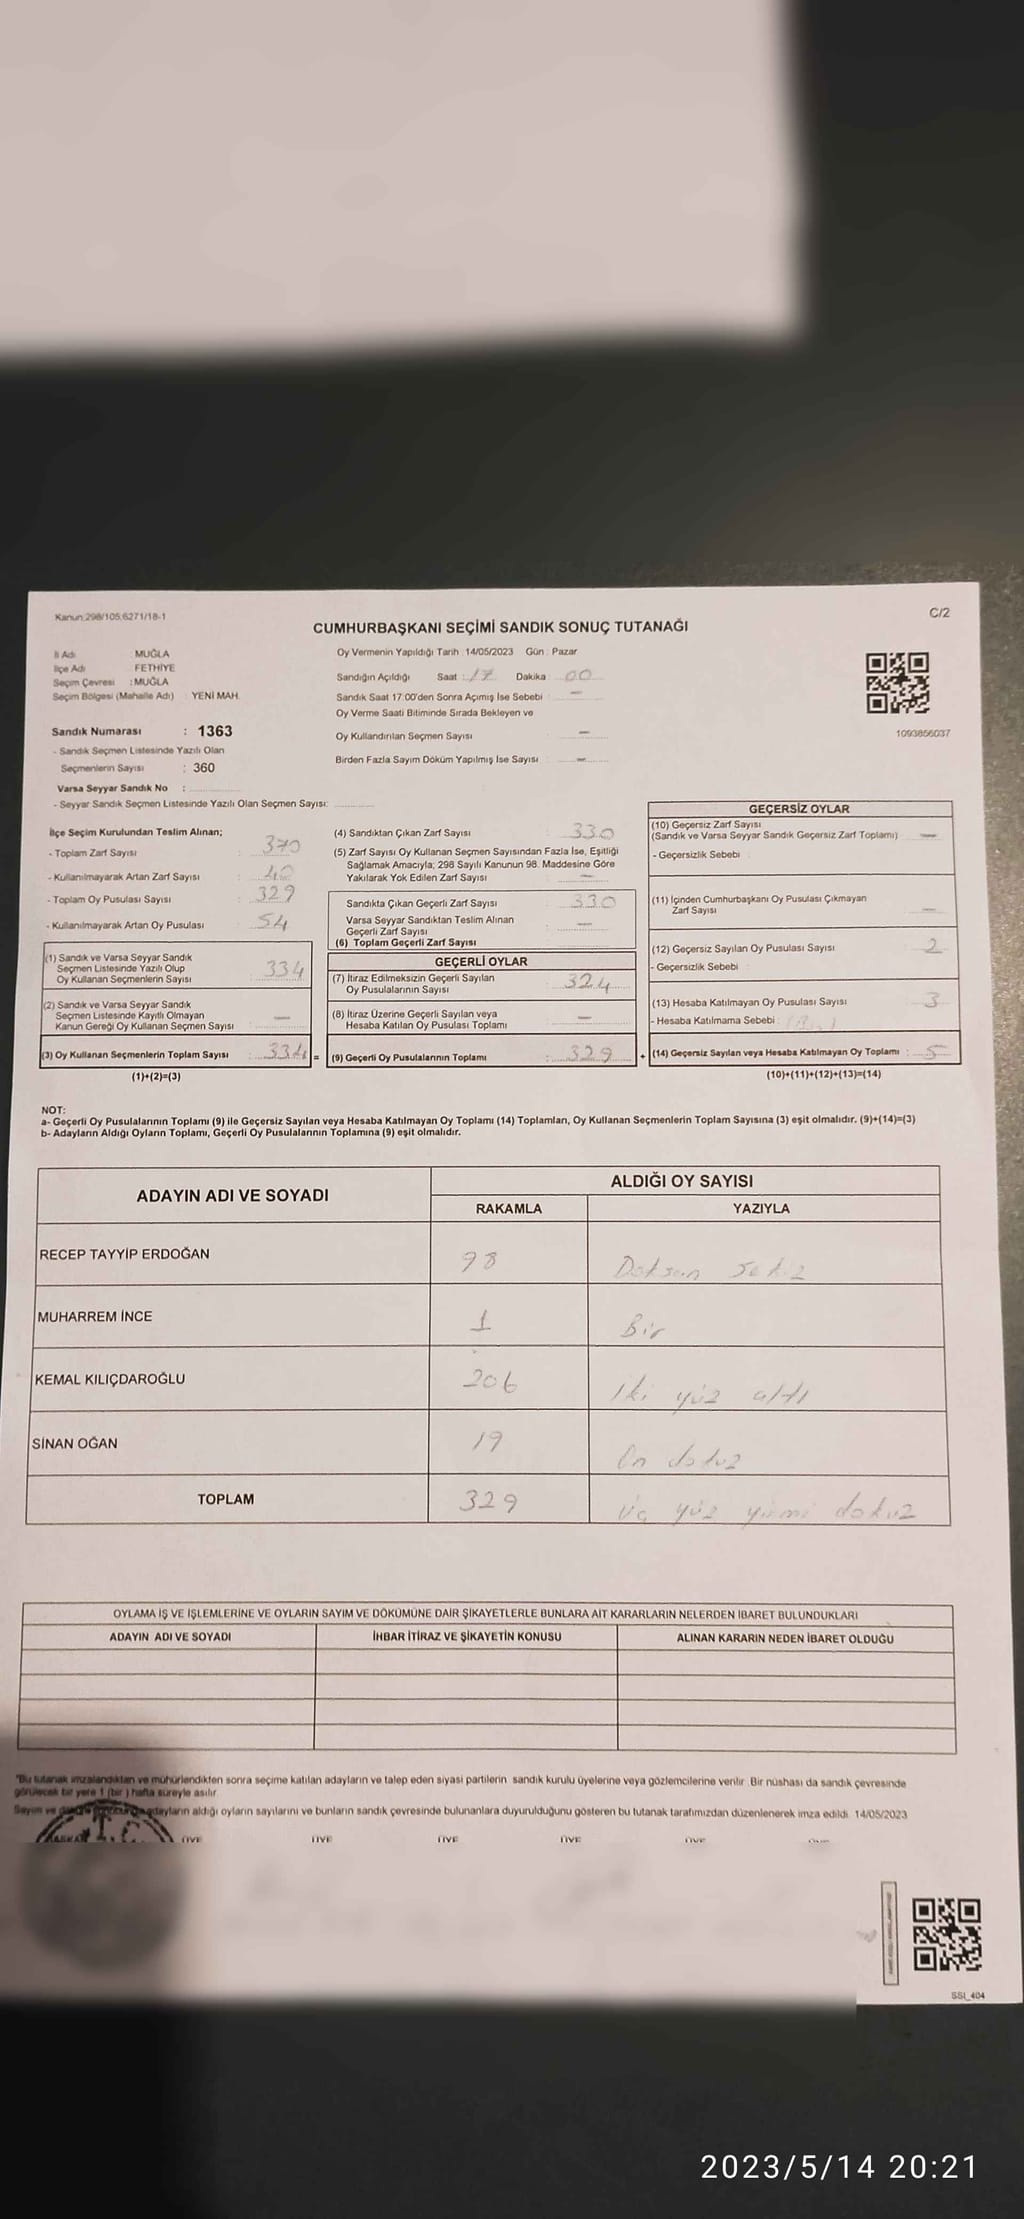 Kanun:298/105;6271/18-1
C/2
CUMHURBAŞKANI SEÇİMİ SANDIK SONUÇ TUTANAĞI
İl Adı : MUĞLA
İlçe Adı : FETHİYE
Seçim Çevresi : MUĞLA
Seçim Bölgesi (Mahalle Adı) : YENİ MAH.
Sandık Numarası : 1363
- Sandık Seçmen Listesinde Yazılı Olan
Seçmenlerin Sayısı : 360
Varsa Seyyar Sandık No :
- Seyyar Sandık Seçmen Listesinde Yazılı Olan Seçmen Sayısı:
Oy Vermenin Yapıldığı Tarih :14/05/2023 Gün : Pazar
Sandığın Açıldığı Saat : 17 Dakika : 00
Sandık Saat 17:00'den Sonra Açımış İse Sebebi : —
Oy Verme Saati Bitiminde Sırada Bekleyen ve
Oy Kullandırılan Seçmen Sayısı : —
Birden Fazla Sayım Döküm Yapılmış İse Sayısı : —
1093856037
İlçe Seçim Kurulundan Teslim Alınan;
- Toplam Zarf Sayısı : 370
- Kullanılmayarak Artan Zarf Sayısı : 40
- Toplam Oy Pusulası Sayısı : 329
- Kullanılmayarak Artan Oy Pusulası : 54
(1) Sandık ve Varsa Seyyar Sandık
Seçmen Listesinde Yazılı Olup
Oy Kullanan Seçmenlerin Sayısı 334
(2) Sandık ve Varsa Seyyar Sandık
Seçmen Listesinde Kayıtlı Olmayan
Kanun Gereği Oy Kullanan Seçmen Sayısı : —
(3) Oy Kullanan Seçmenlerin Toplam Sayısı : 334 =
(1)+(2)=(3)
(4) Sandıktan Çıkan Zarf Sayısı : 330
(5) Zarf Sayısı Oy Kullanan Seçmen Sayısından Fazla İse, Eşitliği
Sağlamak Amacıyla; 298 Sayılı Kanunun 98. Maddesine Göre
Yakılarak Yok Edilen Zarf Sayısı : —
Sandıkta Çıkan Geçerli Zarf Sayısı : 330
Varsa Seyyar Sandıktan Teslim Alınan
Geçerli Zarf Sayısı : —
(6) Toplam Geçerli Zarf Sayısı
GEÇERLİ OYLAR
(7) İtiraz Edilmeksizin Geçerli Sayılan
Oy Pusulalarının Sayısı : 324
(8) İtiraz Üzerine Geçerli Sayılan veya
Hesaba Katılan Oy Pusulası Toplamı : —
(9) Geçerli Oy Pusulalarının Toplamı : 329 +
GEÇERSİZ OYLAR
(10) Geçersiz Zarf Sayısı
(Sandık ve Varsa Seyyar Sandık Geçersiz Zarf Toplamı) : —
- Geçersizlik Sebebi :
(11) İçinden Cumhurbaşkanı Oy Pusulası Çıkmayan
Zarf Sayısı : —
(12) Geçersiz Sayılan Oy Pusulası Sayısı : 2
- Geçersizlik Sebebi :
(13) Hesaba Katılmayan Oy Pusulası Sayısı : 3
- Hesaba Katılmama Sebebi :
(14) Geçersiz Sayılan veya Hesaba Katılmayan Oy Toplamı : 5
(10)+(11)+(12)+(13)=(14)
NOT:
a- Geçerli Oy Pusulalarının Toplamı (9) ile Geçersiz Sayılan veya Hesaba Katılmayan Oy Toplamı (14) Toplamları, Oy Kullanan Seçmenlerin Toplam Sayısına (3) eşit olmalıdır. (9)+(14)=(3)
b- Adayların Aldığı Oyların Toplamı, Geçerli Oy Pusulalarının Toplamına (9) eşit olmalıdır.
ADAYIN ADI VE SOYADI
ALDIĞI OY SAYISI
RAKAMLA YAZIYLA
RECEP TAYYİP ERDOĞAN 98 Doksan sekiz
MUHARREM İNCE 1 Bir
KEMAL KILIÇDAROĞLU 206 İki yüz altı
SİNAN OĞAN 19 On dokuz
TOPLAM 329 Üç yüz yirmi dokuz
OYLAMA İŞ VE İŞLEMLERİNE VE OYLARIN SAYIM VE DÖKÜMÜNE DAİR ŞİKAYETLERLE BUNLARA AİT KARARLARIN NELERDEN İBARET BULUNDUKLARI
ADAYIN ADI VE SOYADI İHBAR İTİRAZ VE ŞİKAYETİN KONUSU ALINAN KARARIN NEDEN İBARET OLDUĞU
"Bu tutanak imzalandıktan ve mühürlendikten sonra seçime katılan adayların ve talep eden siyasi partilerin sandık kurulu üyelerine veya gözlemcilerine verilir. Bir nüshası da sandık çevresinde
görülecek bir yere 1 (bir) hafta süreyle asılır.
Sayım ve adayların aldığı oyların sayılarını ve bunların sandık çevresinde bulunanlara duyurulduğunu gösteren bu tutanak tarafımızdan düzenlenerek imza edildi. 14/05/2023
BAŞKAN T.C. ÜYE ÜYE ÜYE ÜYE ÜYE
SSI_404
2023/5/14 20:21